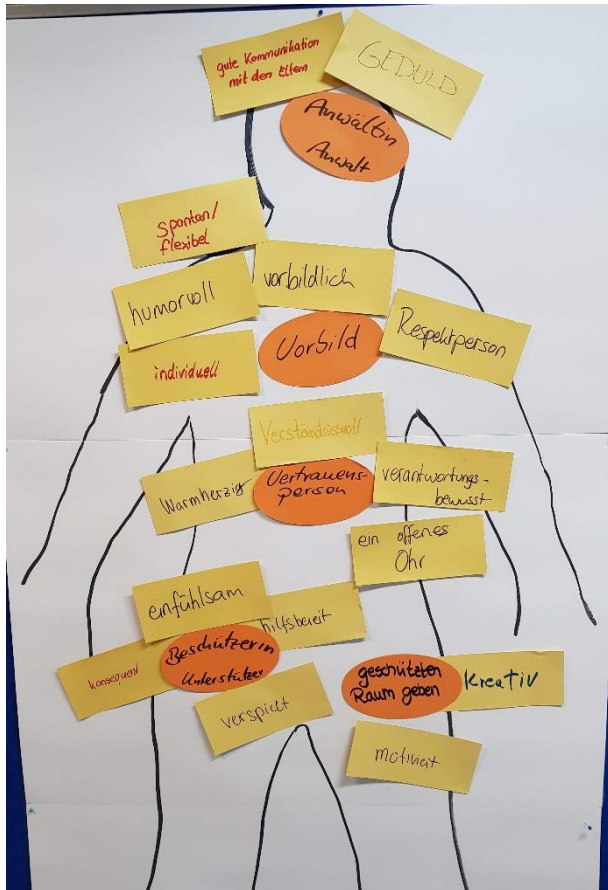 gute Kommunikation
mit den Eltern
GEDULD
Anwältin
Anwalt
Spontan/
flexibel
vorbildlich
humorvoll
Vorbild
Respektperson
individuell
Verständnisvoll
Warmherzig
Vertrauens-
person
verantwortungs-
bewusst
ein offenes
Ohr
einfühlsam
hilfsbereit
Beschützerin
Unterstützer
konsequent
verspielt
geschützten
Raum geben
Kreativ
motiviert